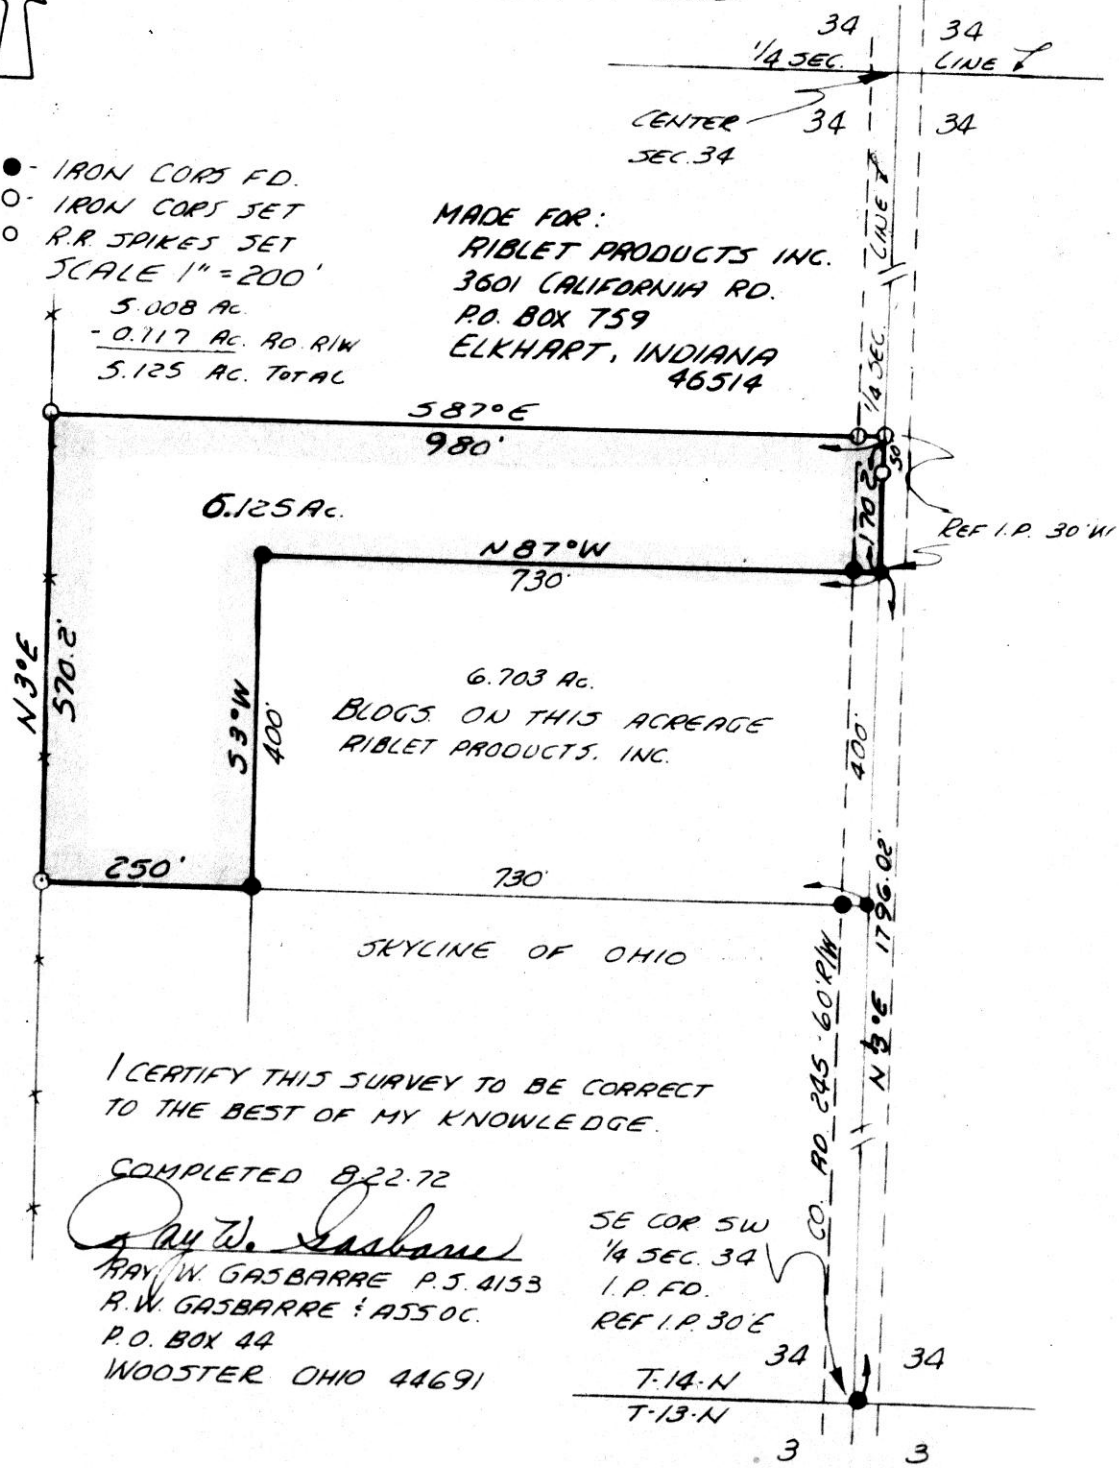 34
34
1/4 SEC.
LINE
CENTER
SEC. 34
34
34
- IRON CORS FD.
- IRON CORS SET
R.R. SPIKES SET
SCALE 1" = 200'
5.008 AC.
- 0.117 AC. RD. R/W
5.125 AC. TOTAL
MADE FOR:
RIBLET PRODUCTS INC.
3601 CALIFORNIA RD.
P.O. BOX 759
ELKHART, INDIANA
46514
1/4 SEC.
LINE
S 87° E
980'
50'
170.2
REF I.P. 30'
N 87° W
730'
N 3° E
570.2'
S 3° W
400'
6.703 AC.
BLDGS. ON THIS ACREAGE
RIBLET PRODUCTS. INC.
400'
250'
730'
SKYLINE OF OHIO
N 3° E 1796.02'
CO. RD. 245 - 60' R/W
I CERTIFY THIS SURVEY TO BE CORRECT
TO THE BEST OF MY KNOWLEDGE.
COMPLETED 8-22-72
Ray W. Gasbarre
RAY W. GASBARRE P.S. 4153
R.W. GASBARRE & ASSOC.
P.O. BOX 44
WOOSTER OHIO 44691
SE COR. SW
1/4 SEC. 34
I.P. FD.
REF I.P. 30' E
34
34
T-14-N
T-13-N
3
3